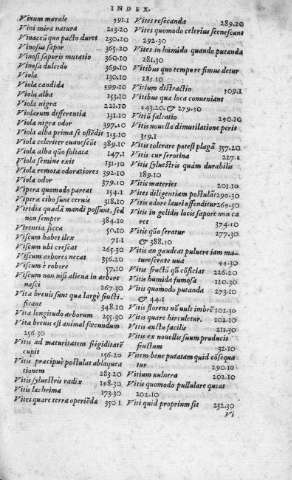 INDEX.
Vinum morale 391.1
Vini mira natura 213.20
Vinacei quo pacto duret 230.10
Vinosus sapor 365.20
Vinosi saporis mutatio 360.10
Vinosa dulcedo 369.10
Viola 130.10
Viola candida 299.10
Viola alba 253.10
Viola nigra 221.10
Violarum differentia 131.10
Viola nigra odor 397.10
Viola alba prima se ostendit 213.10
Viola celeriter consenescit 389.10
Viola alba quo satu 147.1
Viola semine exit 131.10
Viola remota odoratiores 392.10
Viola odor 379.10
Vipera quomodo pareat 154.1
Vipera cibo sunt cervis 318.10
Viridia quædam mandi possunt, sed
non semper 384.10
Viscum habet ilex 71.1
Viscum ubi crescat 265.30
Viscum arbores necat 356.20
Viscum è robore 57.10
Viscum non nisi aliena in arbore
nasci 267.30
Vita brevis sunt qua large fructi-
ficant 348.20
Vita longitudo arborum 255.30
Vita brevis est animal fœcundum
256.30
Vitis ad maturitatem frigiditate
cupit 156.20
Vitis præcipue postulat ablaquea-
tionem 283.20
Vitis sylvestris radix 168.30
Vitis lachrima 173.30
Vites quare terra operienda 350.1
Vites resecanda 289.20
Vites quomodo celerius senescunt
292.30
Vites in humido quande putanda
281.30
Vitibus quo tempore fimus detur
281.10
Vitium distractio 309.1
Vitibus qua loca conveniant
243.20. & 279.10
Vitis satio 240.10
Vitis novella dimutilatione perit
319.1
Vitis tolerare potest plaga 357.20
Vitis cur serotina 227.1
Vitis sylvestris quam durabilis
189.10
Vitis materies 201.10
Vites diligentiam postulat 290.30
Vites odore lauri offenditur 264.30
Vitis in gelidis locis sapore vina ca
ret 374.10
Vitis quo seratur 277.30
& 388.10
Vitis an gaudeat pulvere iam ma-
turescente uva 44.30
Vitis fructus quo officiatur 226.20
Vitis humida fumosa 110.30
Vitis quomodo putanda 273.10
& 44.1
Vitis florens no vult imbre 101.10
Vitis quare herculetur. 202.10
Vitis exustu facilis 211.30
Vitis ex novellis suum producit
fructum 32.10
Vitem bene putatam quid consequa
tur 290.10
Vitium vulnera 202.10
Vitis quomodo pullulare queat
201.10
Viti quid proprium sit 252.30
Vi